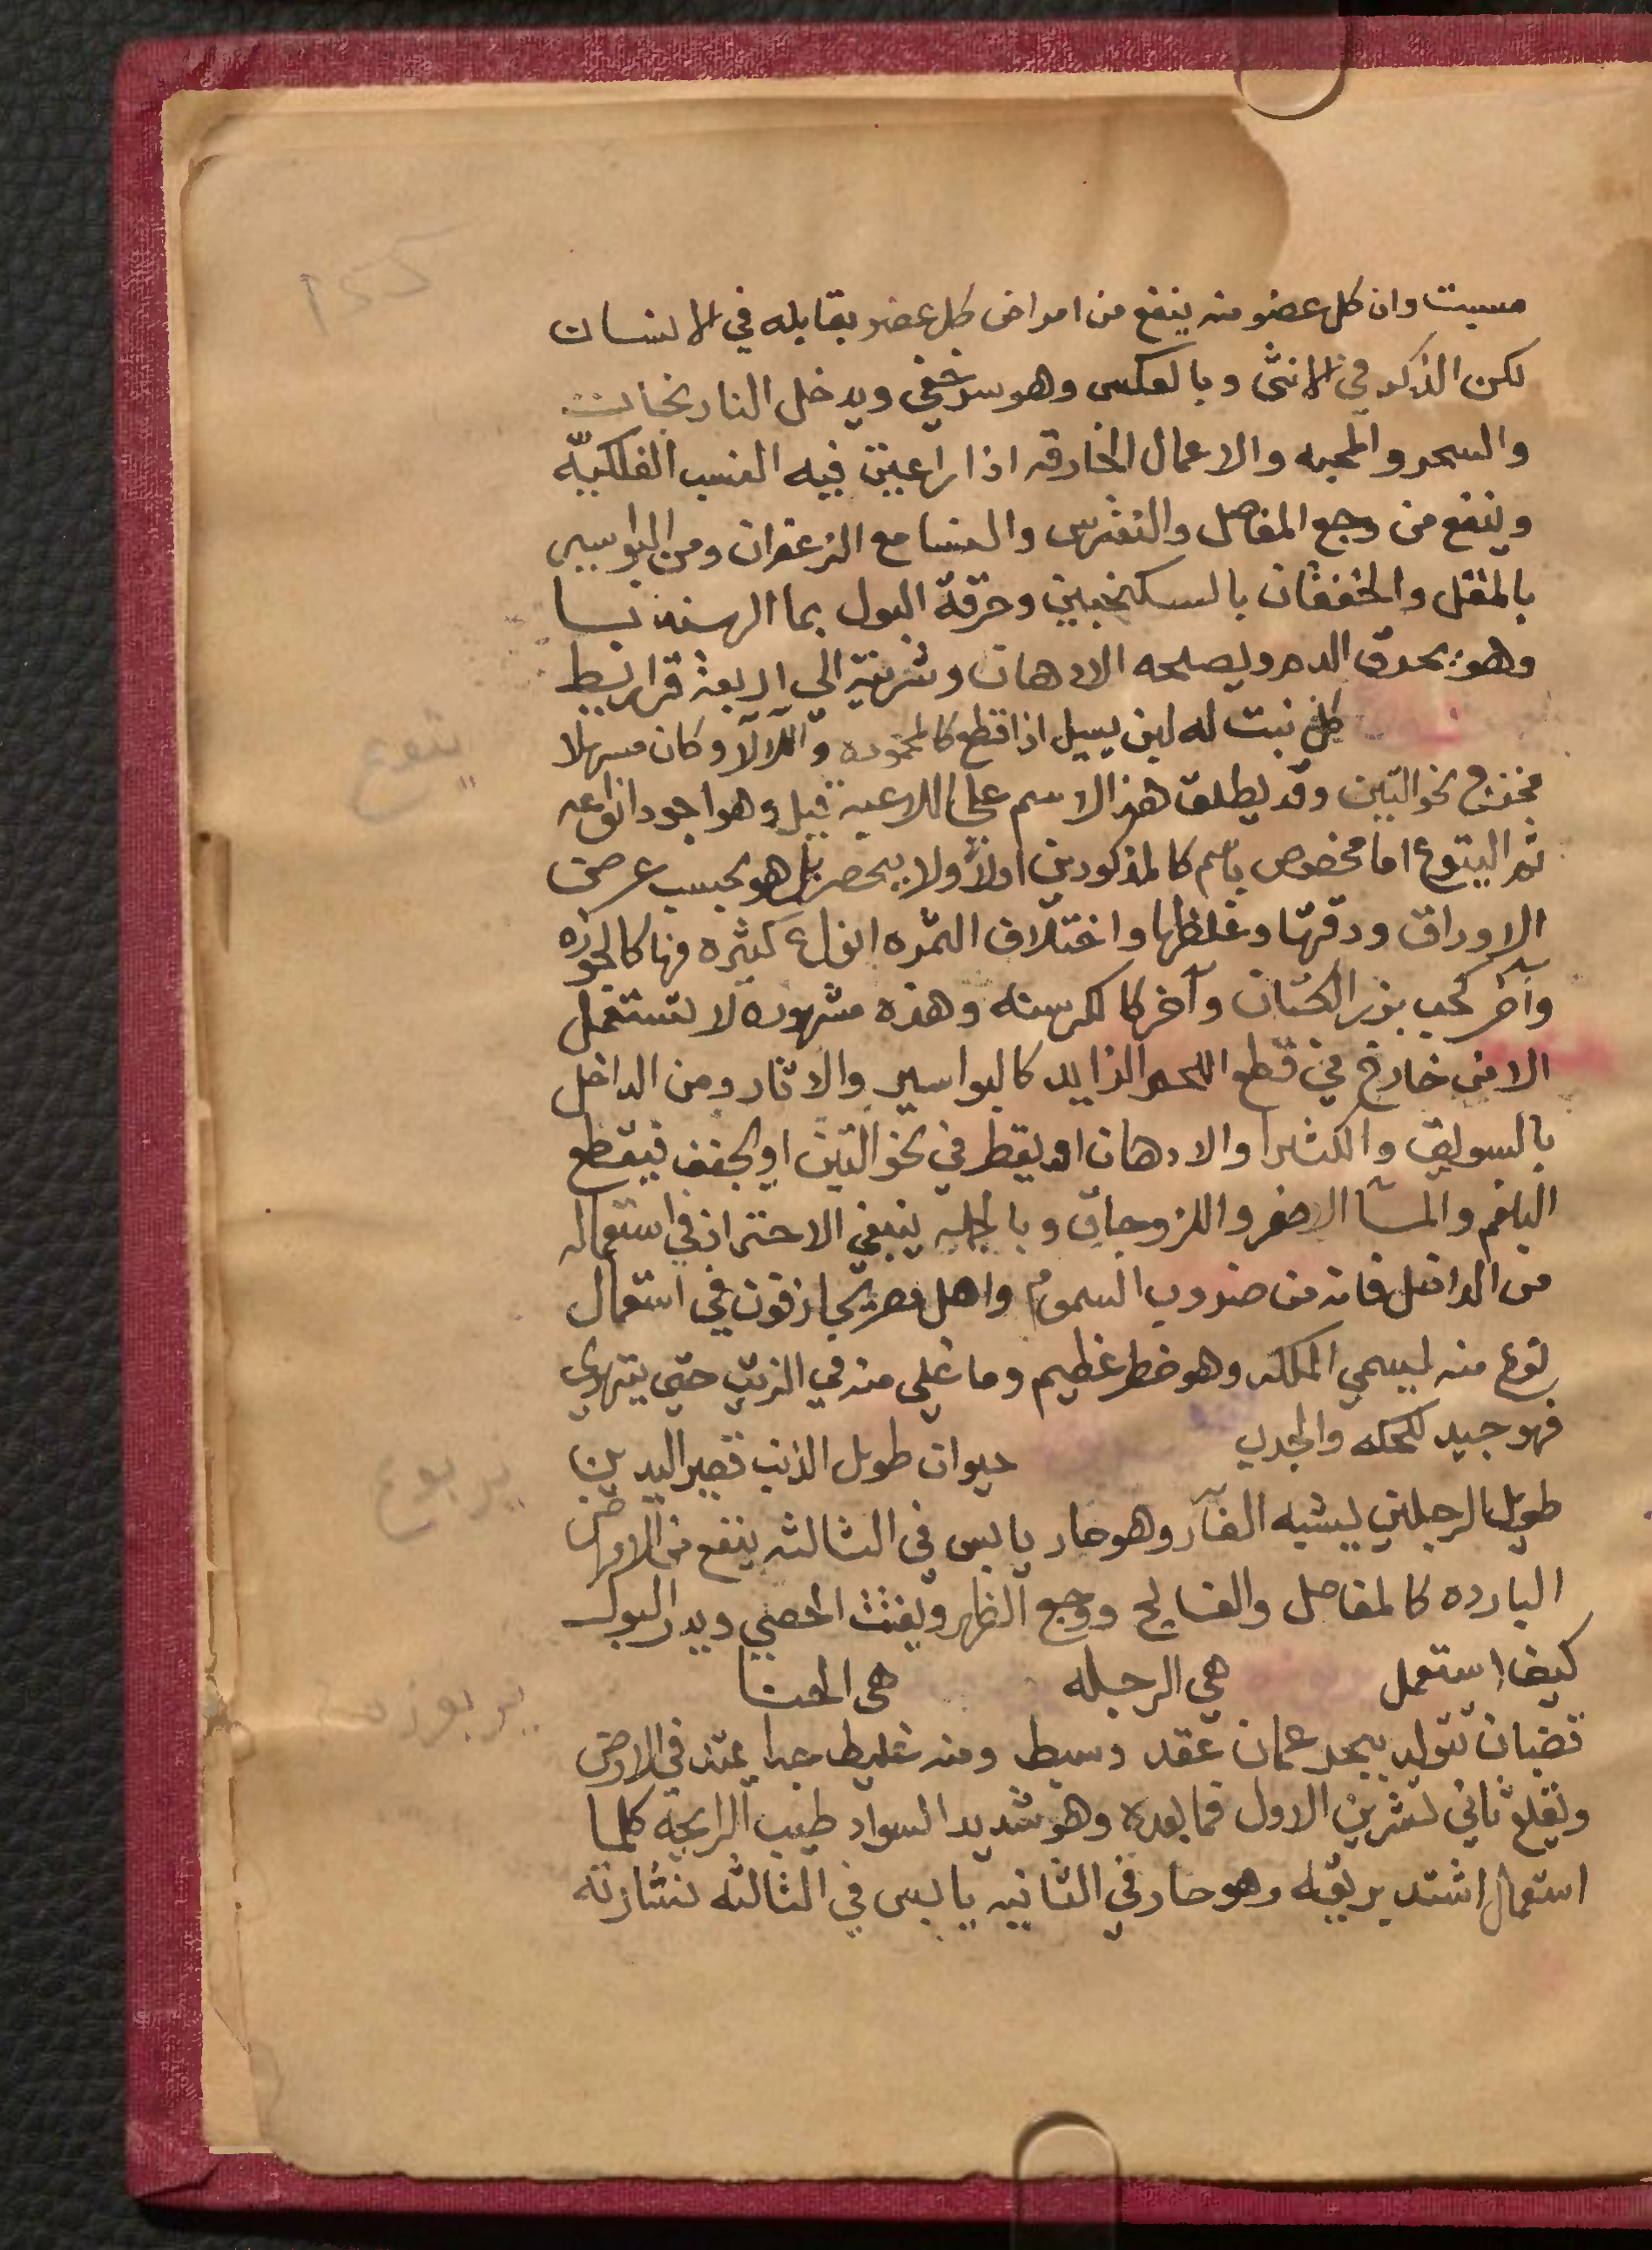 مسبت وان كل عضو منه ينفع من امراض كل عضو يقابله في الانسان
لكن الذكر في الانثى وبالعكس وهو سر خفي ويدخل النارنجات
والسحر والمحبه والاعمال الخارقه اذا راعيت فيه النسب الفلكيّه
وينفع من وجع المفاصل والنقرس والنسا مع الزعفران ومن البواسير
بالمقل والخفقان بالسكنجبين وحرقة البول بما الهندبا
وهو يحرق الدم ويصلحه الادهان وشربته الي اربعة قراريط
كل نبت له لبن يسيل اذا قطع كالمحموده واللالا وكان مسهلا
نحو التين وقد يطلق هذا الاسم علي اللاعيه قيل وهو اجود انواعه
ثم اليتوع اما مخصوص باسم كالمذكورين اولا ولا ينحصر بل هو بحسب عرض
الاوراق ودقتها وغلظها واختلاف الثمره انواع كثيره منها كالجوزه
وآخر كحب بزر الكتان وآخر كالكرسنه وهذه مشهوره لا تستعمل
الا من خارج في قطع اللحم الزايد كالبواسير والاثار ومن الداخل
بالسويق والكثيرا والادهان او يقطر في نحو التين او يجفف فيقطع
البلغم والماء الاصفر واللزوجات وبالجمله ينبغي الاحتراز في استعماله
من الداخل فانه من ضروب السموم واهل مصر يجازفون في استعمال
نوع منه يسمي الملكه وهو خطر عظيم وما غلي منه في الزيت حتي يتهري
فهو جيد للحكه والجرب حيوان طويل الذنب قصير اليدين
طويل الرجلين يشبه الفأر وهو حار يابس في الثالثه ينفع من الامراض
البارده كالمفاصل والفالج ووجع الظهر ويفتت الحصي ويدر البول
كيف استعمل هي الرجله هي الحنا
قضبان تتولد ببحر عمان عقد وسبط ومنه غليظ جدا يمتد في الارض
ويقلع ثاني تشرين الاول فما بعده وهو شديد السواد طيب الرايحة كلما
استعمل اشتد بريقه وهو حار في الثانيه يابس في الثالثه نشارته
يتوع
يربوع
يربوزه